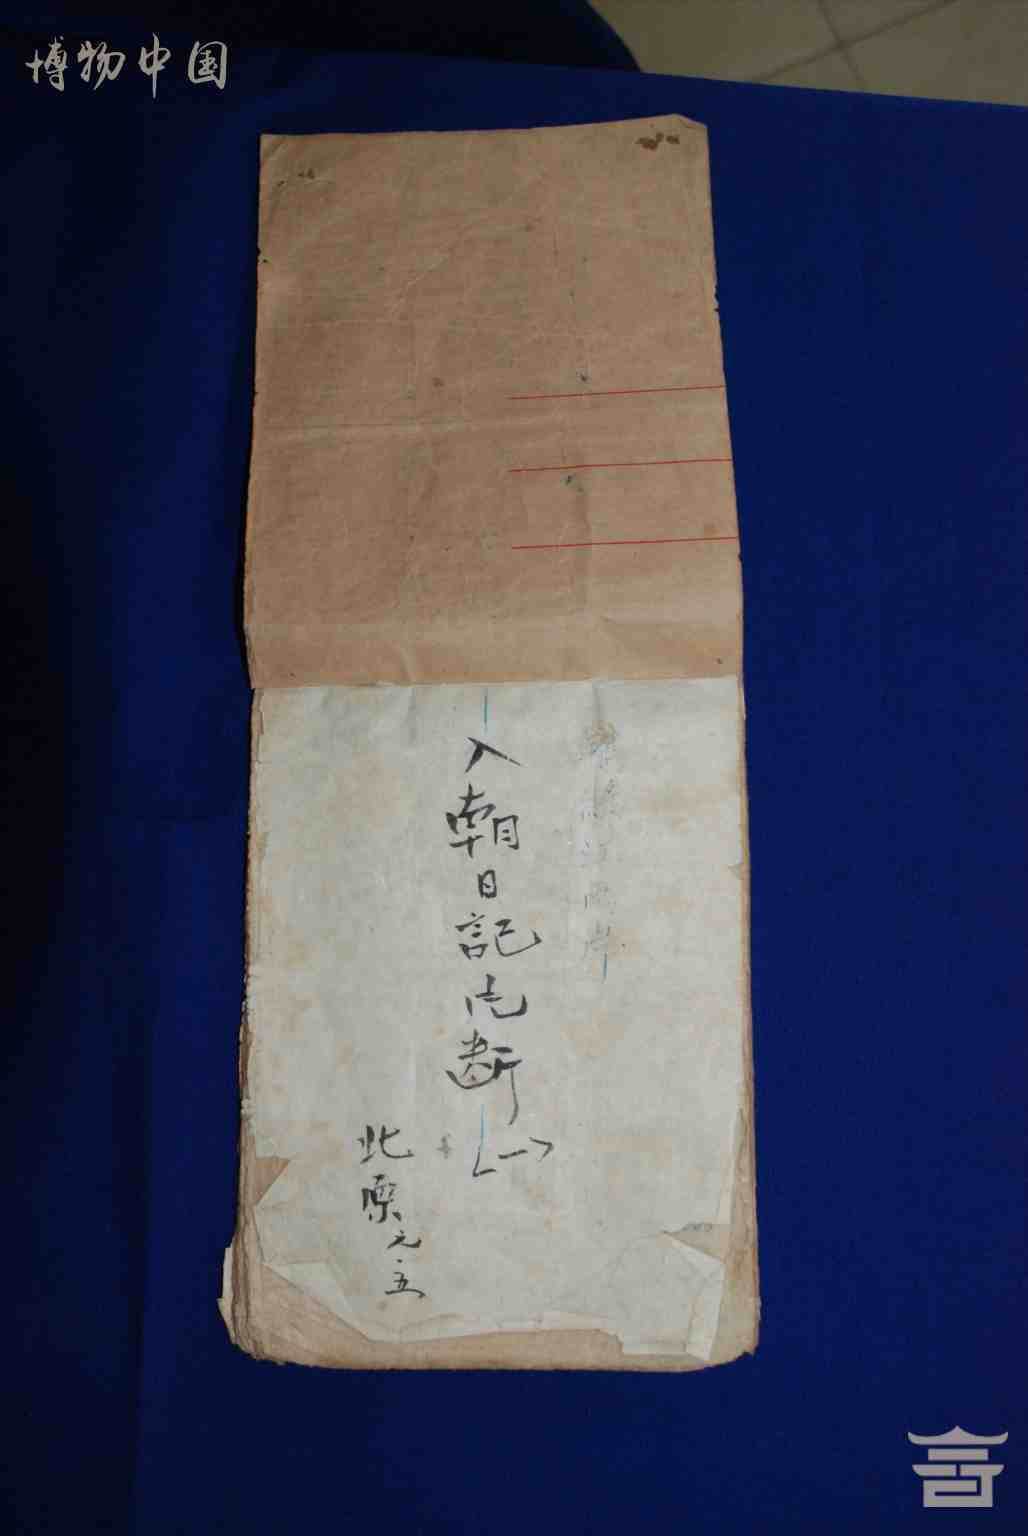 博物中国
入朝日記片断
(一)
北栗
元.五